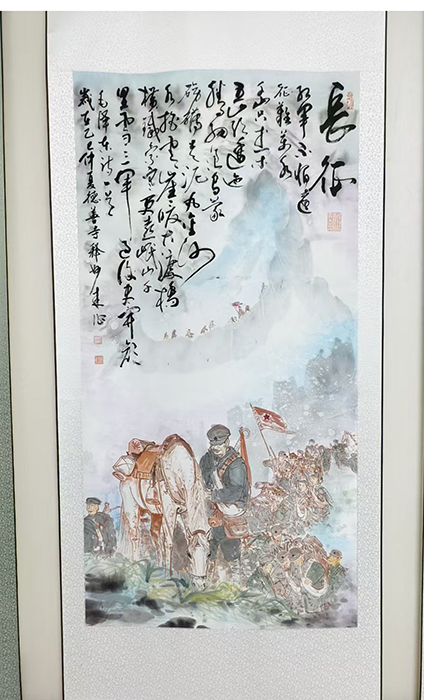 長征
红軍不怕遠
征難萬水
千山只等闲
五岭逶迤
腾细浪乌蒙
磅礴走泥丸金沙
水拍雲崖暖大渡橋
横鐵索寒更喜岷山千
里雪三軍過後尽開顏
毛澤東詩一首
歲在乙巳仲夏德善寺釋